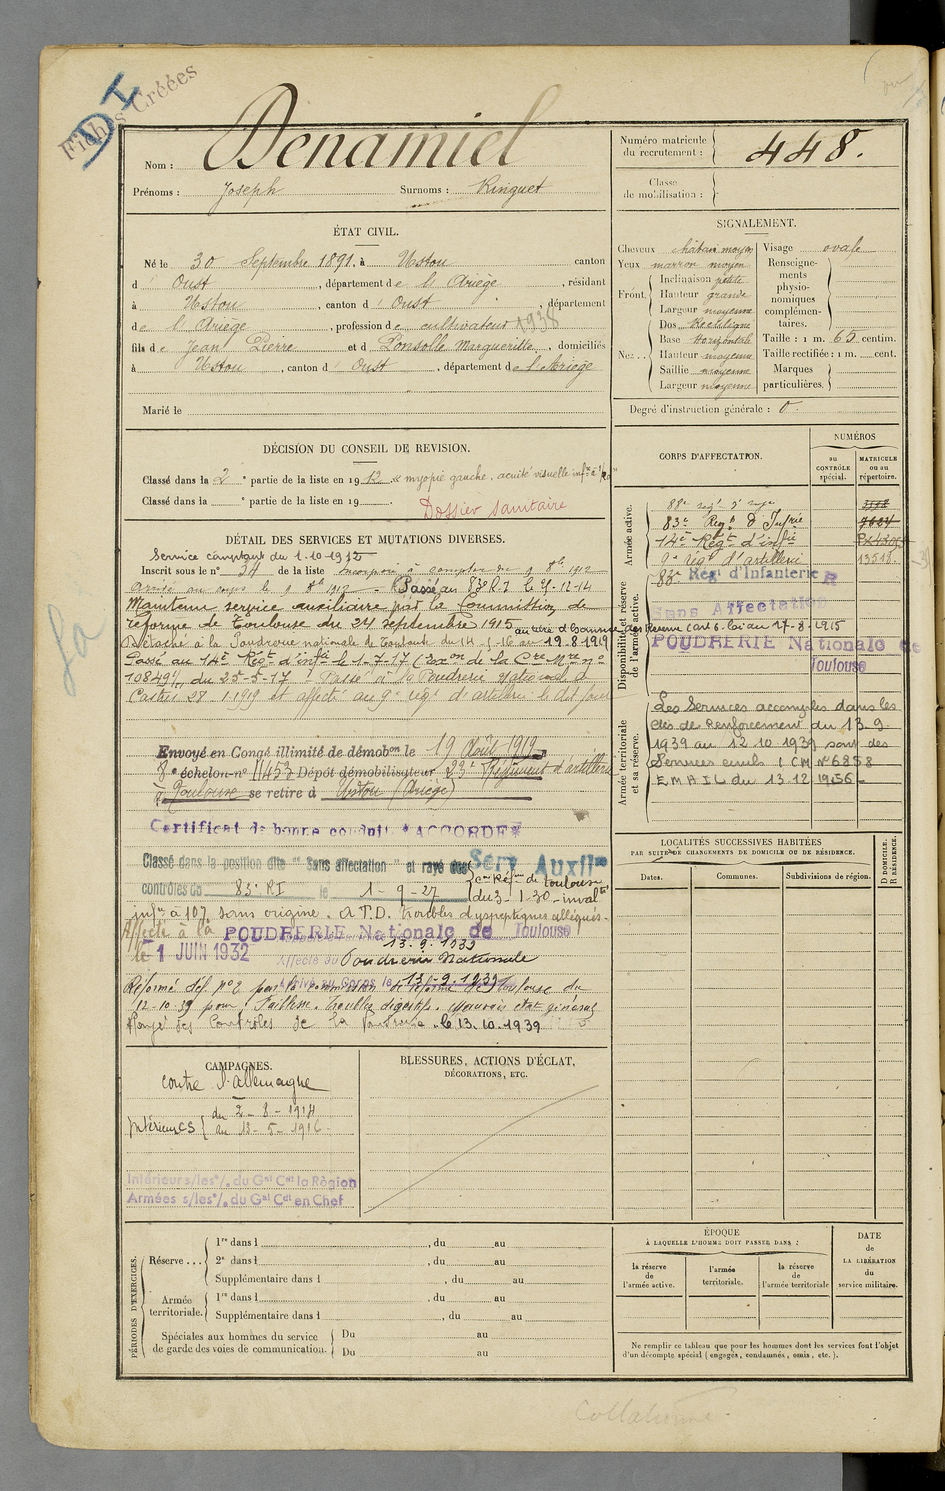 Fiches Créées
D I
Nom : Denamiel
Prénoms : Joseph Surnoms : Ringuet
Numéro matricule du recrutement : 448.
Classe de mobilisation :
ÉTAT CIVIL.
Né le 30 Septembre 1891, à Ustou canton
d' Oust, département de l'Ariège, résidant
à Ustou, canton d' Oust, département
de l'Ariège, profession de cultivateur 1938
fils de Jean Pierre et d Ponsolle Marguerite, domiciliés
à Ustou, canton d' Oust, département de l'Ariège
Marié le
SIGNALEMENT.
Cheveux châtain moyen
Yeux marron moyen
Front. Inclinaison petite
Hauteur grande
Largeur moyenne
Nez... Dos Rectiligne
Base horizontale
Hauteur moyenne
Saillie moyenne
Largeur moyenne
Visage ovale
Renseignements physionomiques complémentaires.
Taille : 1 m. 65 centim.
Taille rectifiée : 1 m. cent.
Marques particulières.
Degré d'instruction générale : 0
DÉCISION DU CONSEIL DE REVISION.
Classé dans la 2e partie de la liste en 1912 « myopie gauche, acuité visuelle infre à
Classé dans la e partie de la liste en 19
Dossier sanitaire
DÉTAIL DES SERVICES ET MUTATIONS DIVERSES.
Service comptant du 1.10-1912
Inscrit sous le n° 34 de la liste Incorporé à compter du 9 8bre 1912
Arrivé au corps le 9 8bre 1912 - Passé au 83e R.I. le
Maintenu service auxiliaire par la Commission de
réforme de Toulouse du 24 septembre 1915
au titre d'homme des Réserve (art 6. loi du 17-8-1915
Détaché à la Poudrerie nationale de Toulouse du 14-5-16 au 19.8.1919
Passé au 14e Régt d'infie le 1-7-17
10849 du 25-5-17 Passé à la Poudrerie Nationale de
Castres 28-1-1919 et affecté au 9e régt d'artillerie le dit jour
Envoyé en Congé illimité de démobon le 19 Août 1919
8e échelon-no 11453 Dépôt démobilisateur 23e Régiment d'artillerie
à Toulouse se retire à Ustou (Ariège)
Certificat de bonne conduite "ACCORDÉ"
Classé dans la position dite " Sans affectation " et rayé des
contrôles du 83e RI le 1-9-27
Serv Auxilre
Con Réfme de Toulouse
du 3-1-30 - invalté
infre à 10% sans origine. A.T.D. troubles dyspeptiques allégués -
Affecté à la POUDRERIE Nationale de Toulouse
le 1 JUIN 1932
13.9.1939
Affecté au Poudrerie Nationale
Arrivé au Corps le 13-9.1939
Réformé déf. n°2 par la commission de réforme de Toulouse du
12-10-39 pour faiblesse. Troubles digestifs. Mauvais état général
Rayé des Contrôles de la Poudrerie le 13.10.1939
CORPS D'AFFECTATION.
NUMÉROS
au CONTRÔLE spécial.
MATRICULE ou au répertoire.
Armée active.
83e Regt d'Infrie 7634
14e Régt d'infie
9e Régt d'artillerie 13548
Disponibilité et réserve de l'armée active.
83e Régt d'Infanterie
Sans Affectation
POUDRERIE Nationale de
Toulouse
Armée territoriale et sa réserve.
Les Services accomplis dans les
Cies de Renforcement du 13.9.
1939 au 12.10.1939 sont des
Services civils (CM n° 6858
E.M.A.I.L du 13-12-1956 -
LOCALITÉS SUCCESSIVES HABITÉES
PAR SUITE DE CHANGEMENTS DE DOMICILE OU DE RÉSIDENCE.
Dates. Communes. Subdivisions de région.
D DOMICILE.
R RÉSIDENCE.
CAMPAGNES.
contre l'allemagne
Intérieur CS { du 2-8-1914
au 13-5-1916.
Intérieur s/les o/. du Gal Cdt la Région
Armées s/les o/. du Gal Cdt en Chef
BLESSURES, ACTIONS D'ÉCLAT,
DÉCORATIONS, ETC.
PÉRIODES D'EXERCICES.
Réserve... 1re dans l , du au
2e dans l , du au
Supplémentaire dans l , du au
Armée territoriale. 1re dans l , du au
Supplémentaire dans l , du au
Spéciales aux hommes du service de garde des voies de communication. Du au
Du au
ÉPOQUE
À LAQUELLE L'HOMME DOIT PASSER DANS :
la réserve de l'armée active.
l'armée territoriale.
la réserve de l'armée territoriale
DATE de LA LIBÉRATION du service militaire.
Ne remplir ce tableau que pour les hommes dont les services font l'objet
d'un décompte spécial (engagés, condamnés, omis, etc.).
Collationné